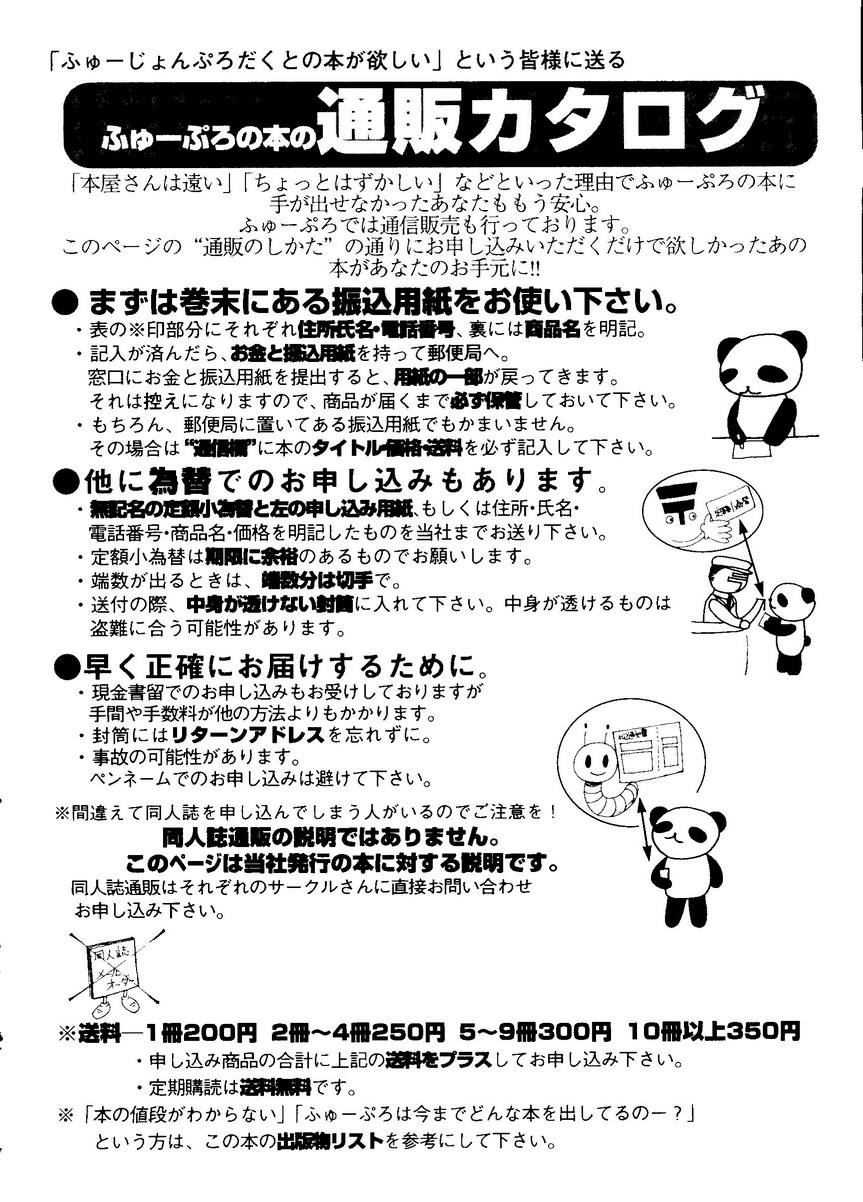 「ふゅーじょんぷろだくとの本が欲しい」という皆様に送る
ふゅーぷろの本の通販カタログ
「本屋さんは遠い」「ちょっとはずかしい」などといった理由でふゅーぷろの本に
手が出せなかったあなたももう安心。
ふゅーぷろでは通信販売も行っております。
このページの“通販のしかた”の通りにお申し込みいただくだけで欲しかったあの
本があなたのお手元に!!
●まずは巻末にある振込用紙をお使い下さい。
・表の※印部分にそれぞれ住所・氏名・電話番号、裏には商品名を明記。
・記入が済んだら、お金と振込用紙を持って郵便局へ。
窓口にお金と振込用紙を提出すると、用紙の一部が戻ってきます。
それは控えになりますので、商品が届くまで必ず保管しておいて下さい。
・もちろん、郵便局に置いてある振込用紙でもかまいません。
その場合は“通信欄”に本のタイトル・価格・送料を必ず記入して下さい。
●他に為替でのお申し込みもあります。
・無記名の定額小為替と左の申し込み用紙、もしくは住所・氏名・
電話番号・商品名・価格を明記したものを当社までお送り下さい。
・定額小為替は期限に余裕のあるものでお願いします。
・端数が出るときは、端数分は切手で。
・送付の際、中身が透けない封筒に入れて下さい。中身が透けるものは
盗難に合う可能性があります。
●早く正確にお届けするために。
・現金書留でのお申し込みもお受けしておりますが
手間や手数料が他の方法よりもかかります。
・封筒にはリターンアドレスを忘れずに。
・事故の可能性があります。
ペンネームでのお申し込みは避けて下さい。
※間違えて同人誌を申し込んでしまう人がいるのでご注意を！
同人誌通販の説明ではありません。
このページは当社発行の本に対する説明です。
同人誌通販はそれぞれのサークルさんに直接お問い合わせ
お申し込み下さい。
同人誌
メール
オーダー
※送料―1冊200円 2冊～4冊250円 5～9冊300円 10冊以上350円
・申し込み商品の合計に上記の送料をプラスしてお申し込み下さい。
・定期購読は送料無料です。
※「本の値段がわからない」「ふゅーぷろは今までどんな本を出してるのー？」
という方は、この本の出版物リストを参考にして下さい。